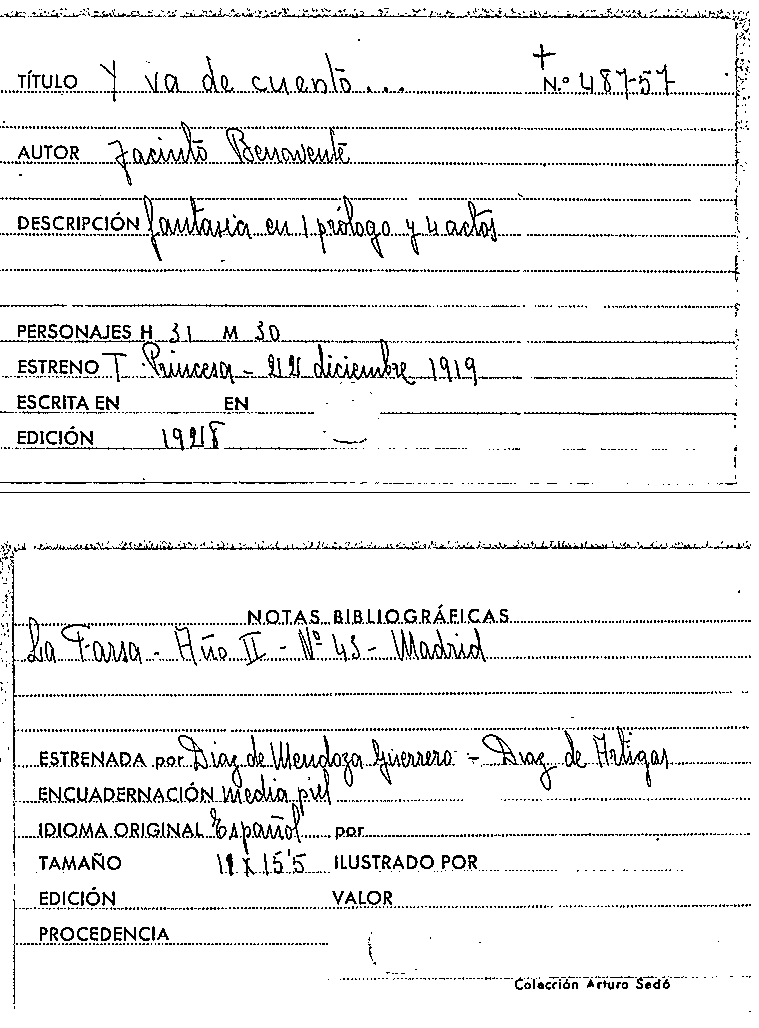 TÍTULO Y va de cuento... N.º 48757
AUTOR Jacinto Benavente
DESCRIPCIÓN fantasia en 1 prólogo y 4 actos
PERSONAJES H 31 M 30
ESTRENO T Princesa - 22 diciembre 1919
ESCRITA EN EN
EDICIÓN 1928
NOTAS BIBLIOGRÁFICAS
La Farsa - Año II - Nº 43 - Madrid
ESTRENADA por Diaz de Mendoza Guerrero - Diaz de Artigas
ENCUADERNACIÓN media piel
IDIOMA ORIGINAL Español por
TAMAÑO 11 x 15'5 ILUSTRADO POR
EDICIÓN VALOR
PROCEDENCIA
Colección Arturo Sedó